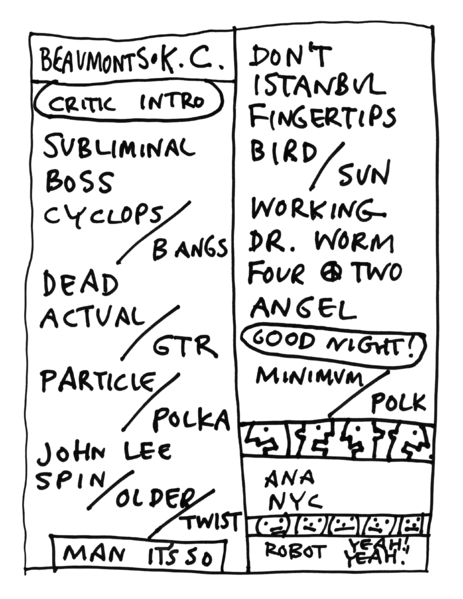 BEAUMONTS • K.C.
CRITIC INTRO
SUBLIMINAL
BOSS
CYCLOPS /
BANGS
DEAD
ACTUAL /
GTR
PARTICLE /
POLKA
JOHN LEE
SPIN /
OLDER /
TWIST
MAN IT'S SO
DON'T
ISTANBUL
FINGERTIPS
BIRD /
SUN
WORKING
DR. WORM
FOUR ☮ TWO
ANGEL
GOOD NIGHT!
MINIMUM /
POLK
ANA
NYC
ROBOT YEAH!
YEAH!